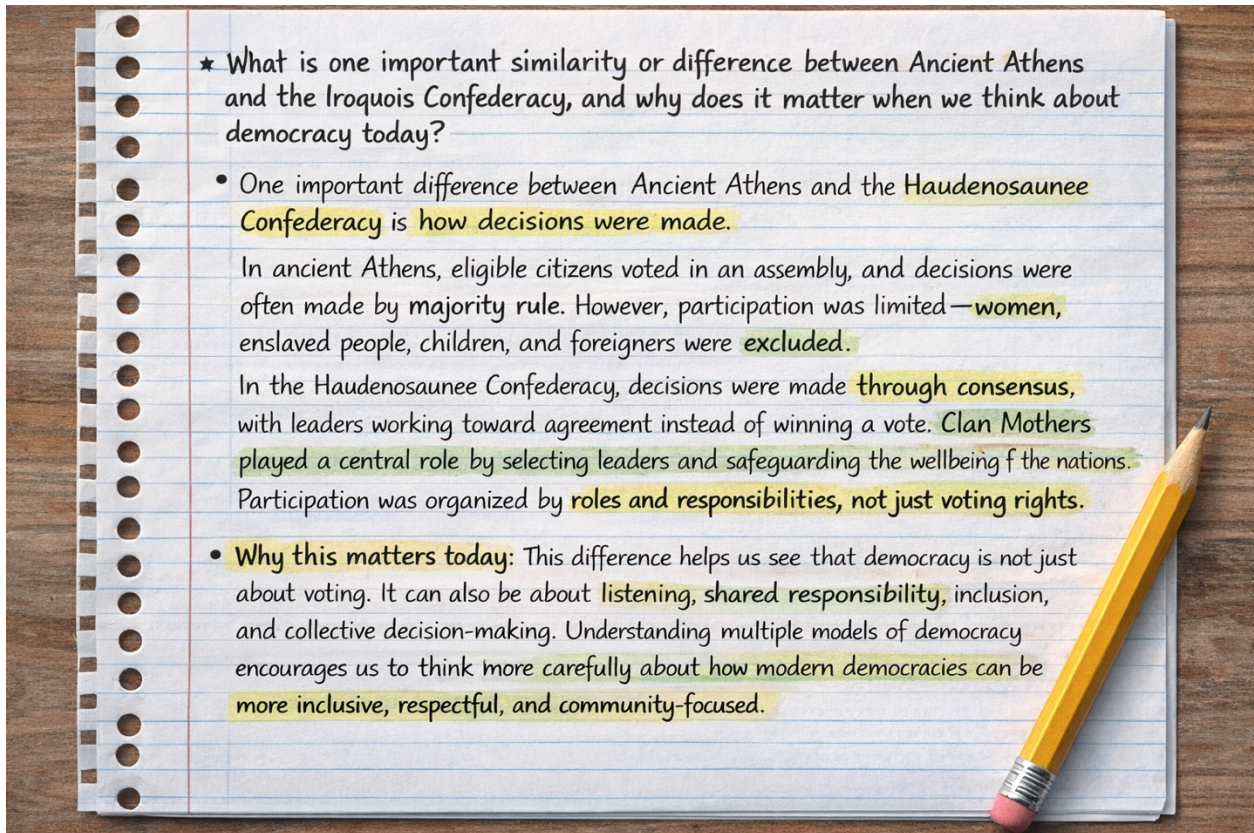 ★ What is one important similarity or difference between Ancient Athens
and the Iroquois Confederacy, and why does it matter when we think about
democracy today?
• One important difference between Ancient Athens and the Haudenosaunee
Confederacy is how decisions were made.
In ancient Athens, eligible citizens voted in an assembly, and decisions were
often made by majority rule. However, participation was limited—women,
enslaved people, children, and foreigners were excluded.
In the Haudenosaunee Confederacy, decisions were made through consensus,
with leaders working toward agreement instead of winning a vote. Clan Mothers
played a central role by selecting leaders and safeguarding the wellbeing f the nations.
Participation was organized by roles and responsibilities, not just voting rights.
• Why this matters today: This difference helps us see that democracy is not just
about voting. It can also be about listening, shared responsibility, inclusion,
and collective decision-making. Understanding multiple models of democracy
encourages us to think more carefully about how modern democracies can be
more inclusive, respectful, and community-focused.